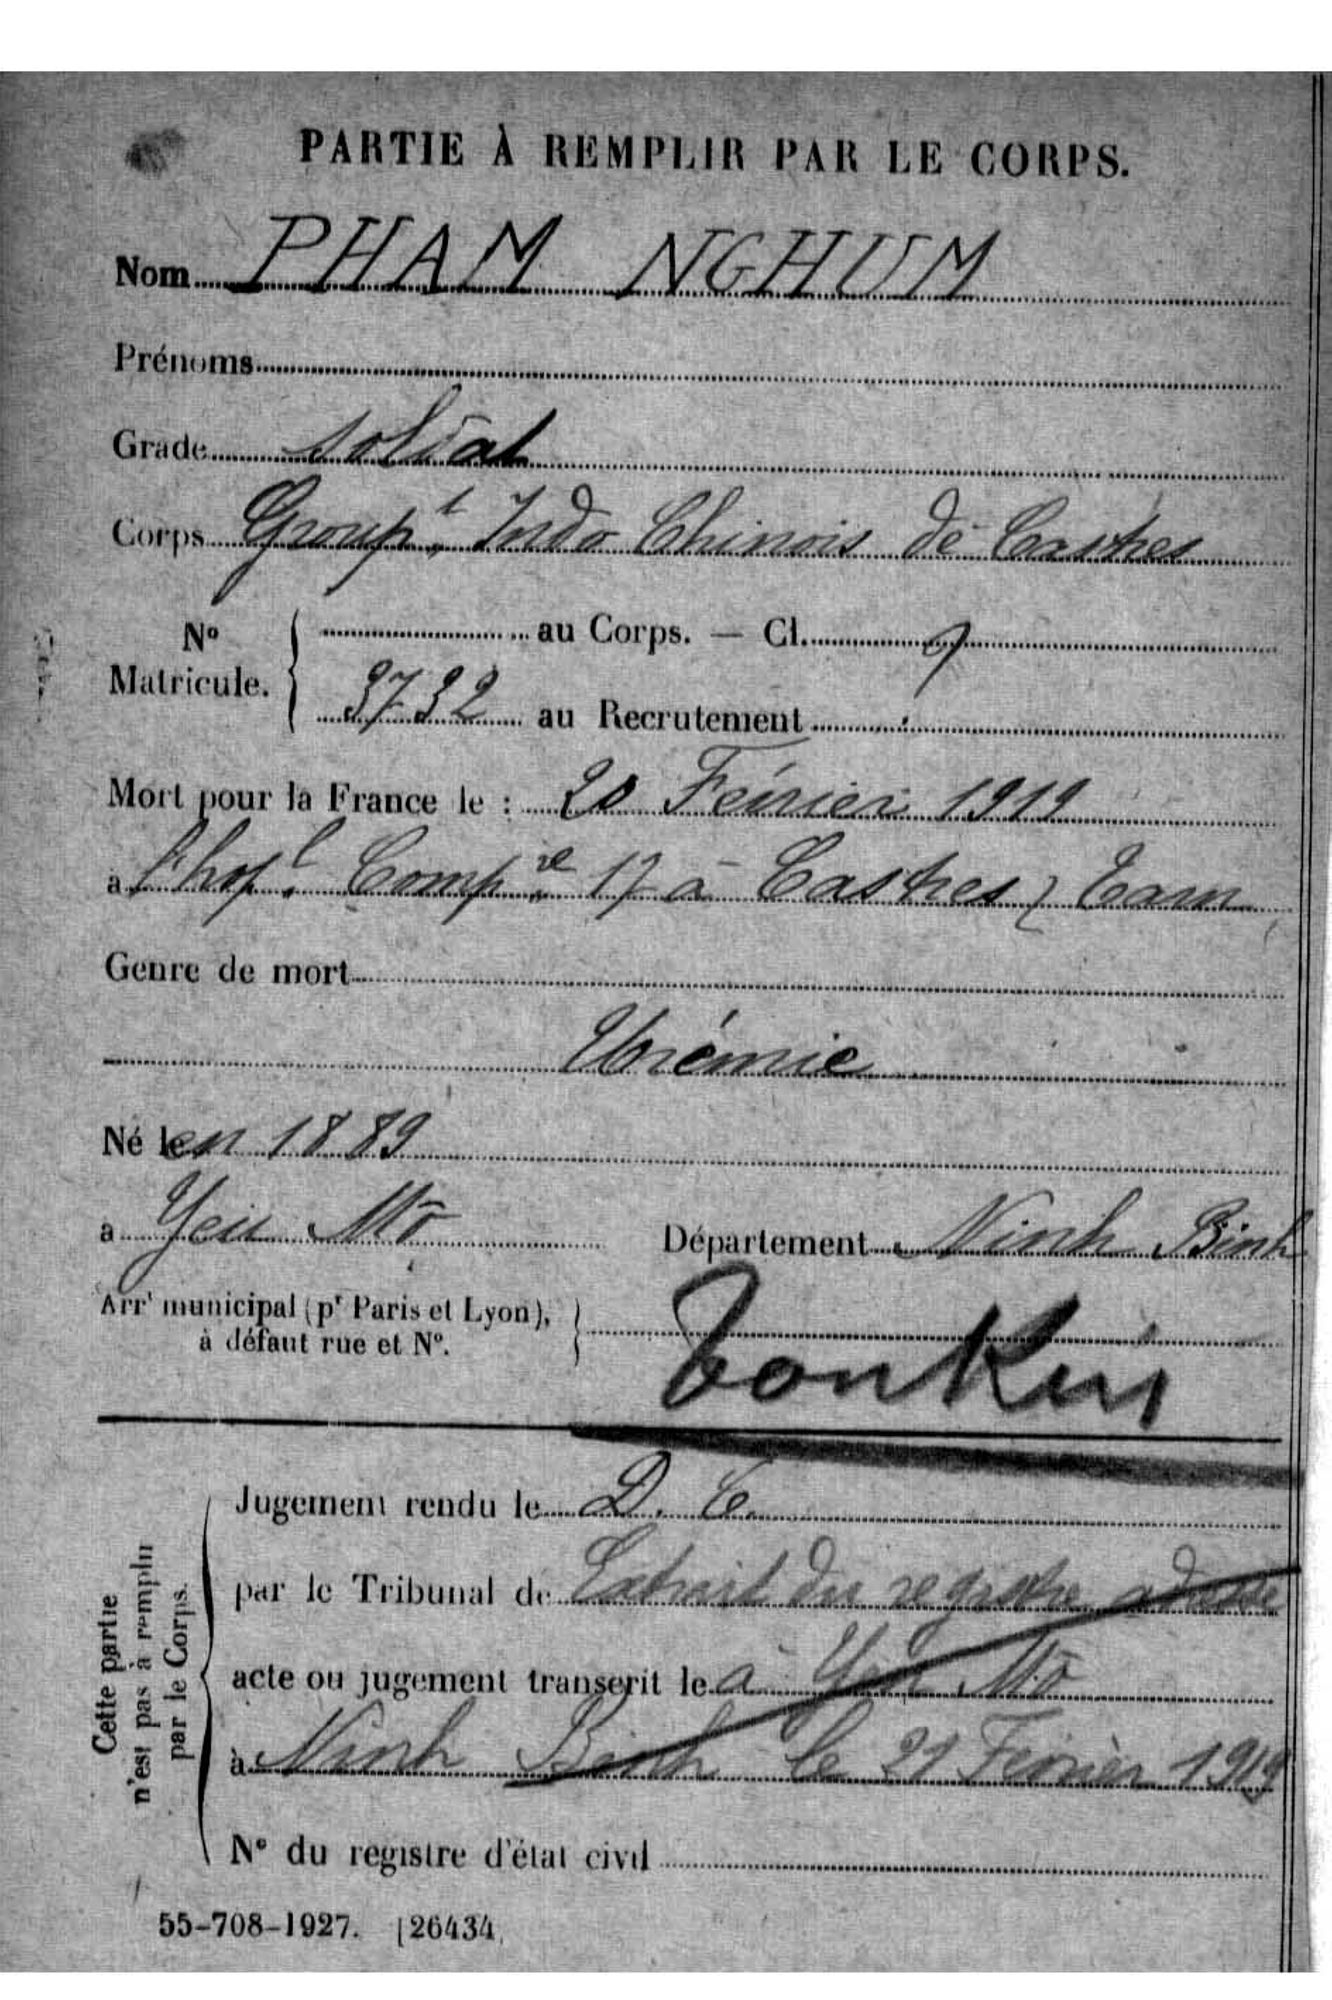 PARTIE À REMPLIR PAR LE CORPS.
Nom PHAM NGHUM
Prénoms
Grade soldat
Corps Groupt Indo Chinois de Castres
No Matricule. au Corps. — Cl.
3732 au Recrutement
Mort pour la France le : 20 Février 1919
a l'hopl Compre 17 à Castres Tarn
Genre de mort
Urémie
Né le en 1889
a Yen Mô Département Ninh Binh
Arrt municipal (pr Paris et Lyon), à défaut rue et No.
Tonkin
Cette partie n'est pas à remplir par le Corps.
Jugement rendu le D. C.
par le Tribunal de Extrait du registre adressé
acte ou jugement transcrit le à Yen Mô
à Ninh Binh le 21 Février 1919
No du registre d'état civil
55-708-1927. [26434